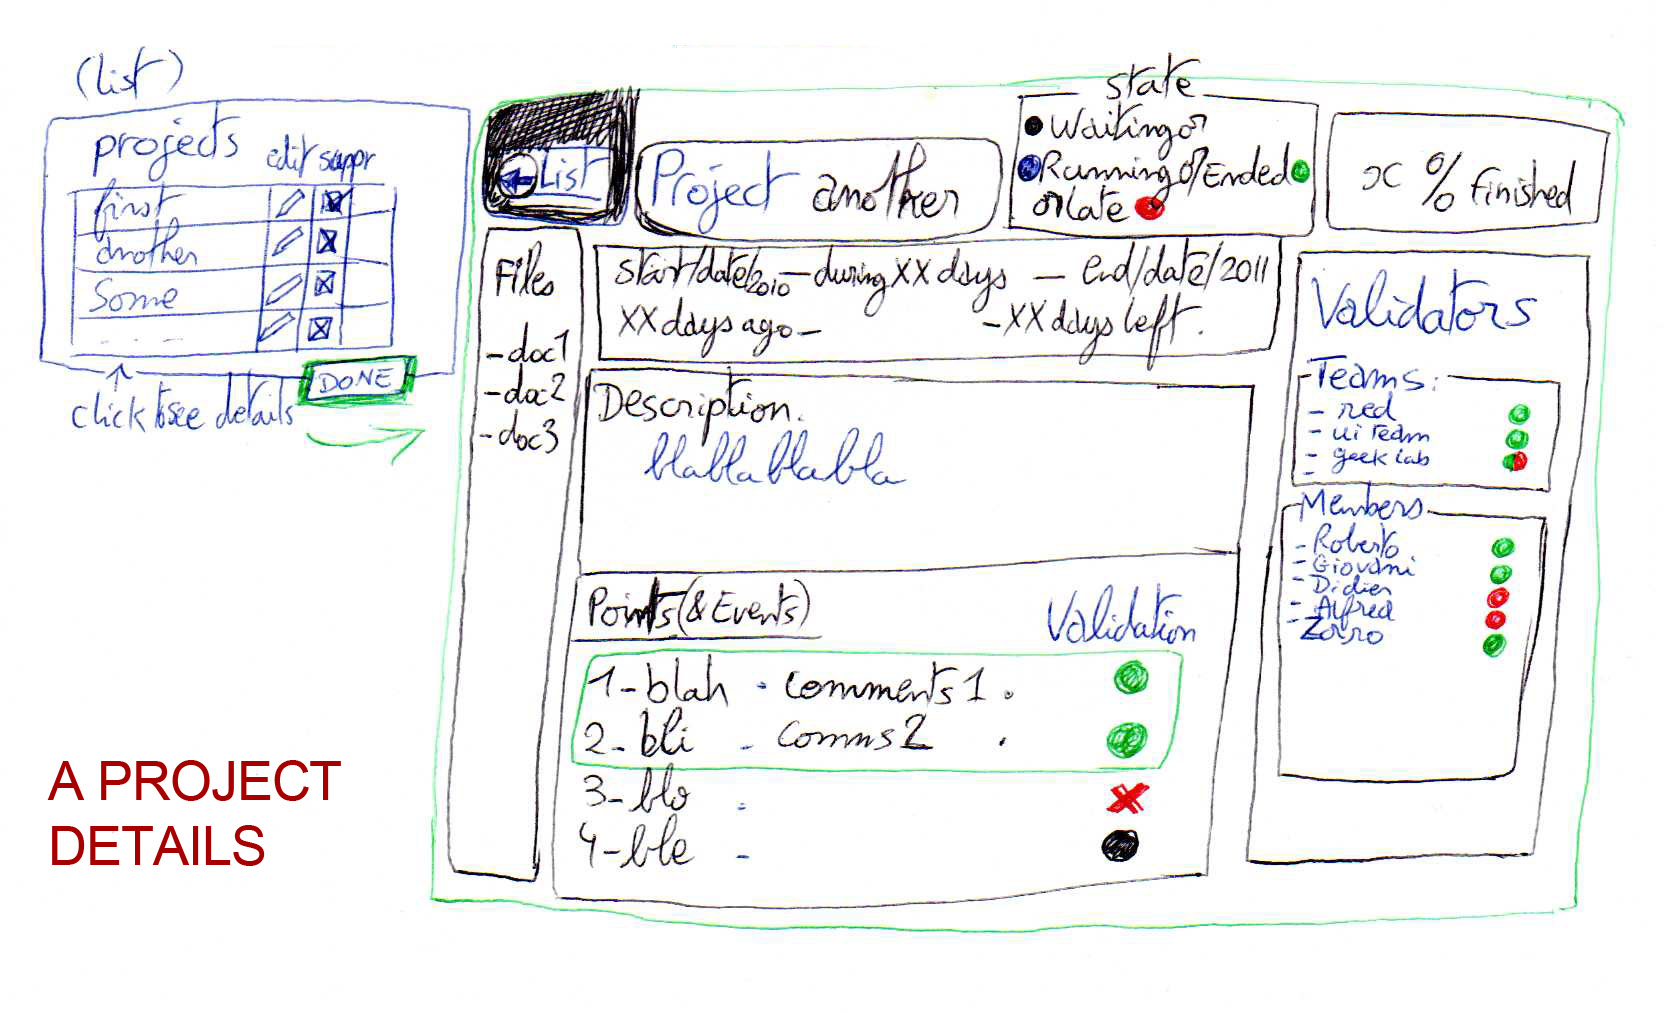 (list)
projects
edit suppr
first
another
Some
DONE
click to see details
A PROJECT
DETAILS
List
Project another
state
Waiting or
Running or Ended
or late
x % finished
Files
-doc1
-doc2
-doc3
start/date/2010 — during XX days — end/date/2011
XX days ago - - XX days left.
Description.
blablablabla
Points (& Events)
Validation
1-blah - comments1.
2-bli - comms2 .
3-blo -
4-ble -
Validators
Teams:
- red
- ui team
- geek lab
-
Members
- Roberto
- Giovani
- Didier
- Alfred
- Zorro